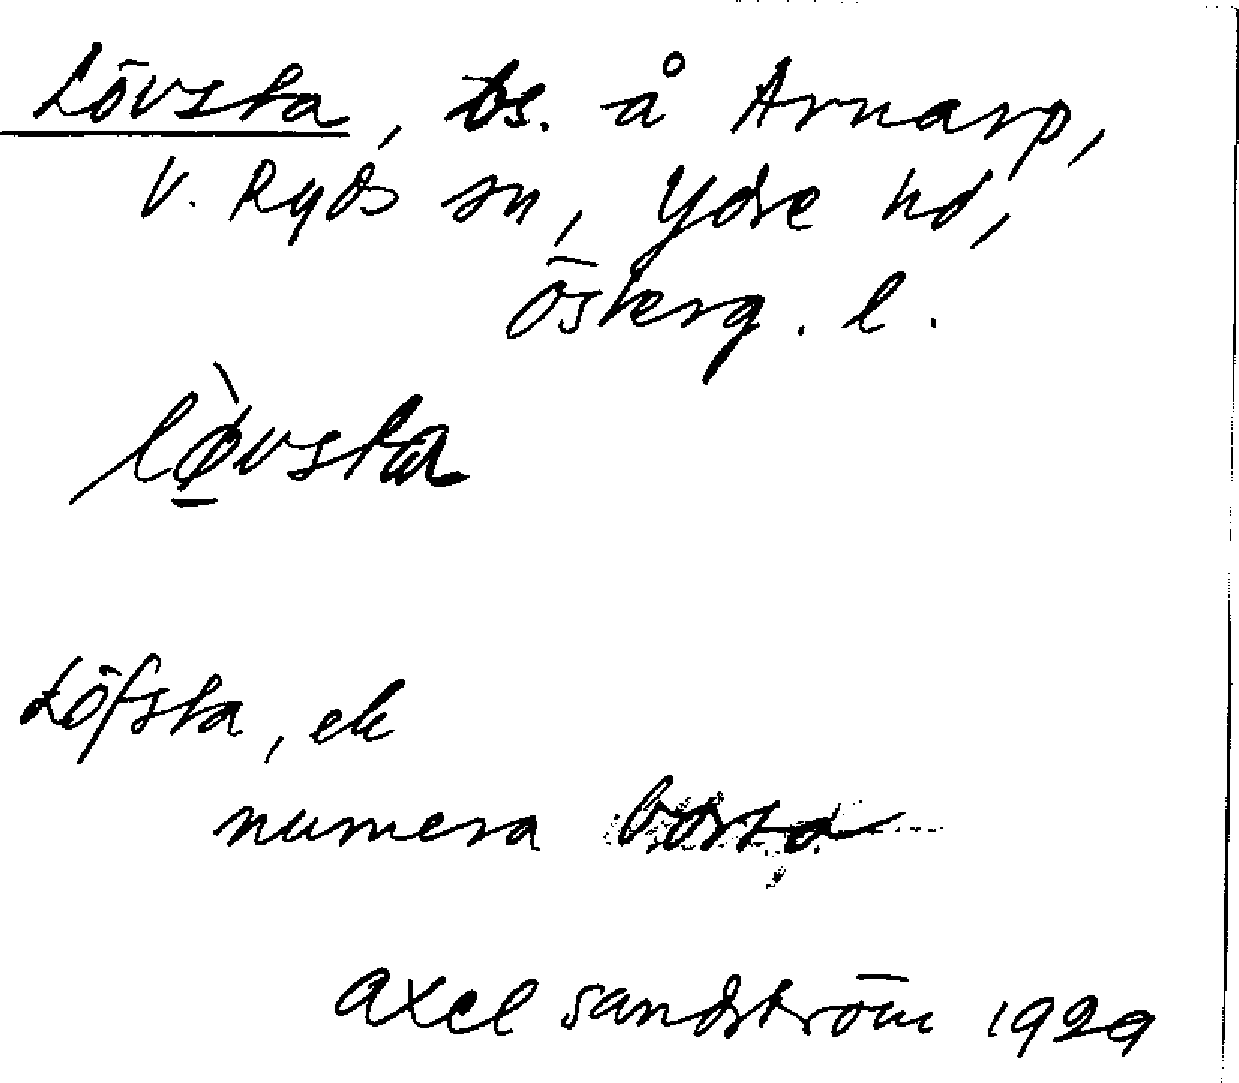 Lövsta, bs. å Arnarp,
V. Ryds sn, Ydre hd,
Österg. l.
lø̀vsta
Löfsta, ek
numera borta
Axel Sandström 1929